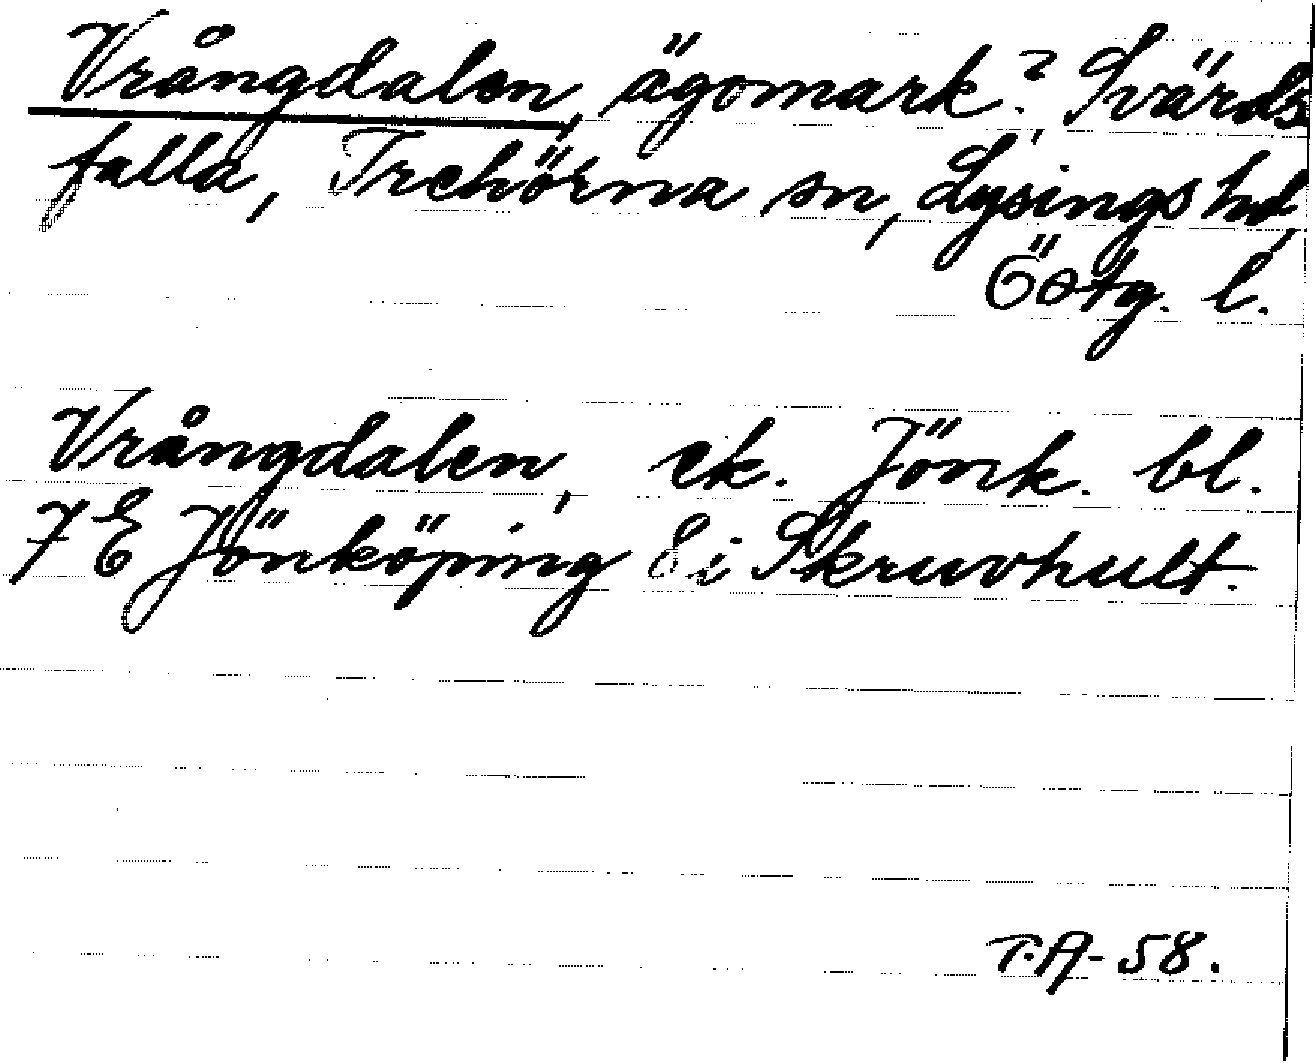 Vrångdalen, ägomark? Svärds
falla, Trehörna sn, Lysings hd,
Östg. l.
Vrångdalen, ek. Jönk. bl.
7 E Jönköping 8 i Skruvhult.
T.A- 58.